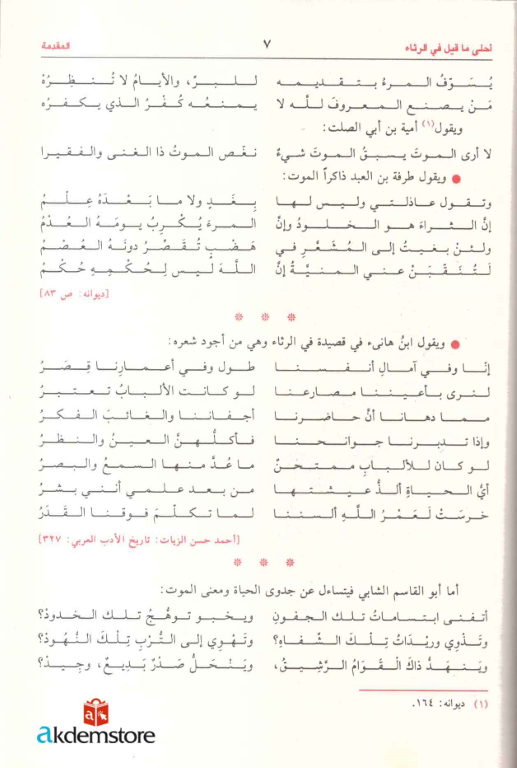 أحلى ما قيل في الرثاء ٧ المقدمة
يُسَوِّفُ المرءُ بتقديمه للبرِّ، والأيامُ لا تُنظِرُهْ
مَنْ يصنعِ المعروفَ للَّه لا يمنعُه كُفْرُ الذي يكفُرُه
ويقول(١) أمية بن أبي الصلت:
لا أرى الموتَ يسبقُ الموتَ شيءٌ نغّص الموتُ ذا الغنى والفقيرا
● ويقول طرفة بن العبد ذاكراً الموت:
وتقول عاذلتي وليس لها بِغَدٍ ولا ما بَعْدَهُ عِلْمُ
إنَّ الثراءَ هو الخلودُ وإنَّ المرءَ يُكْرِبُ يومَهُ العُدْمُ
ولئنْ بغيتُ إلى المُشَقَّرِ في هَضْبٍ تُقَصِّرُ دونَهُ العُصْمُ
لَتُنَقِّبَنْ عني المنيَّةُ إنَّ اللَّهَ ليْس لِحُكْمِهِ حُكْمُ
[ديوانه: ص ٨٣]
* * *
● ويقول ابنُ هانىء في قصيدة في الرثاء وهي من أجود شعره:
إنّا وفي آمالِ أنفسنا طول وفي أعمارِنا قِصَرُ
لنرى بأعيننا مصارعنا لو كانت الألبابُ تعتبرُ
مما دهانا أنَّ حاضرَنا أجفاننا والغائبَ الفكرُ
وإذا تدبرنا جوانحنا فأكلُّهنَّ العينُ والنظرُ
لو كان للألبابِ ممتحنٌ ما عُدَّ منها السمعُ والبصرُ
أيُّ الحياةِ ألذُّ عيشتها من بعد علمي أنني بشرُ
خرستْ لَعَمْرُ اللَّهِ ألسننا لما تكلّم فوقنا القدَرُ
[أحمد حسن الزيات: تاريخ الأدب العربي: ٣٤٧]
* * *
أما أبو القاسم الشابي فيتساءل عن جدوى الحياة ومعنى الموت:
أتفنى ابتساماتُ تلك الجفونِ ويخبو توهّجُ تلك الخدودْ؟
وتَذْوِي وريْدَاتُ تِلْكَ الشِّفاهِ؟ وتَهْوِي إلى التُّرْبِ تِلْكَ النُّهُودْ؟
ويَنهَدُّ ذاكَ القَوَامُ الرَّشِيقُ، ويَنْحَلُّ صَدْرٌ بَدِيعٌ، وجِيدْ؟
(١) ديوانه: ١٦٤.
akdemstore